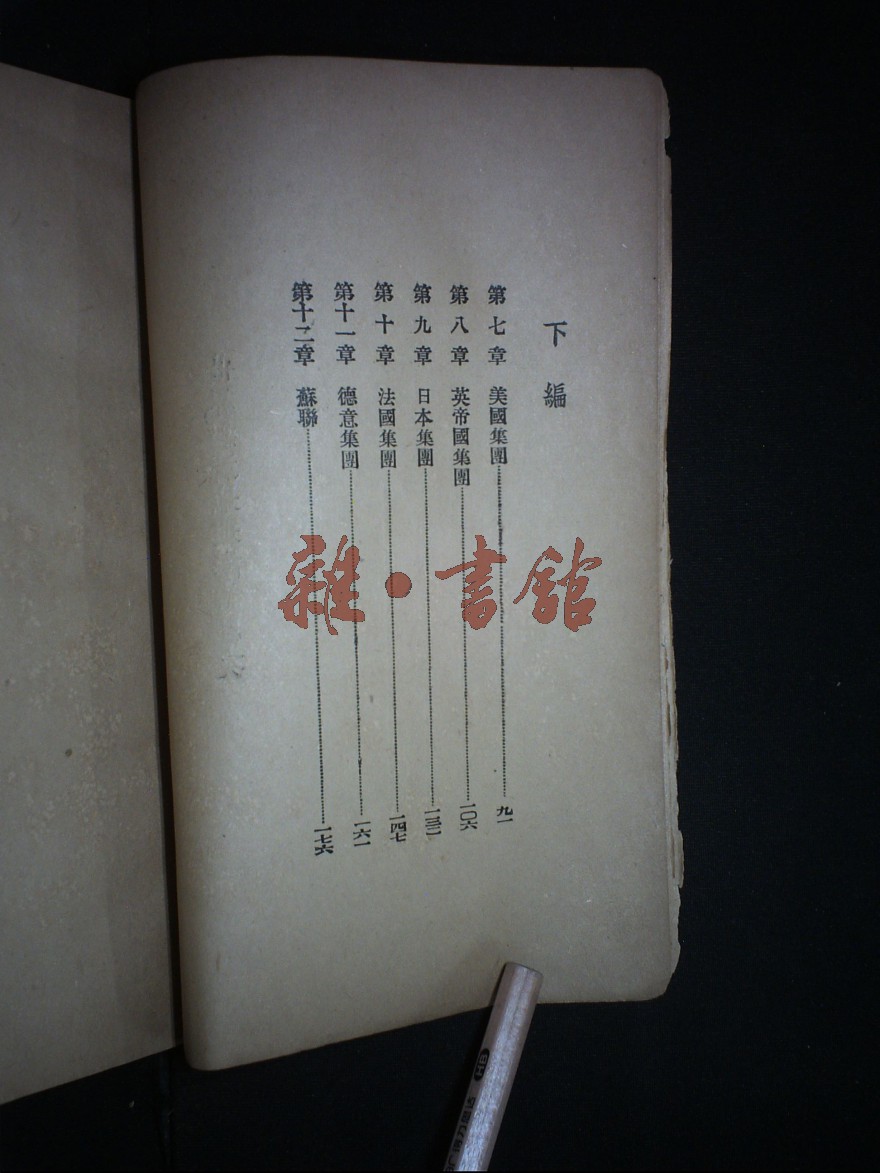 下編
第七章 美國集團 九一
第八章 英帝國集團 一〇六
第九章 日本集團 一三二
第十章 法國集團 一四七
第十一章 德意集團 一六一
第十二章 蘇聯 一七六
雜·書館
HB